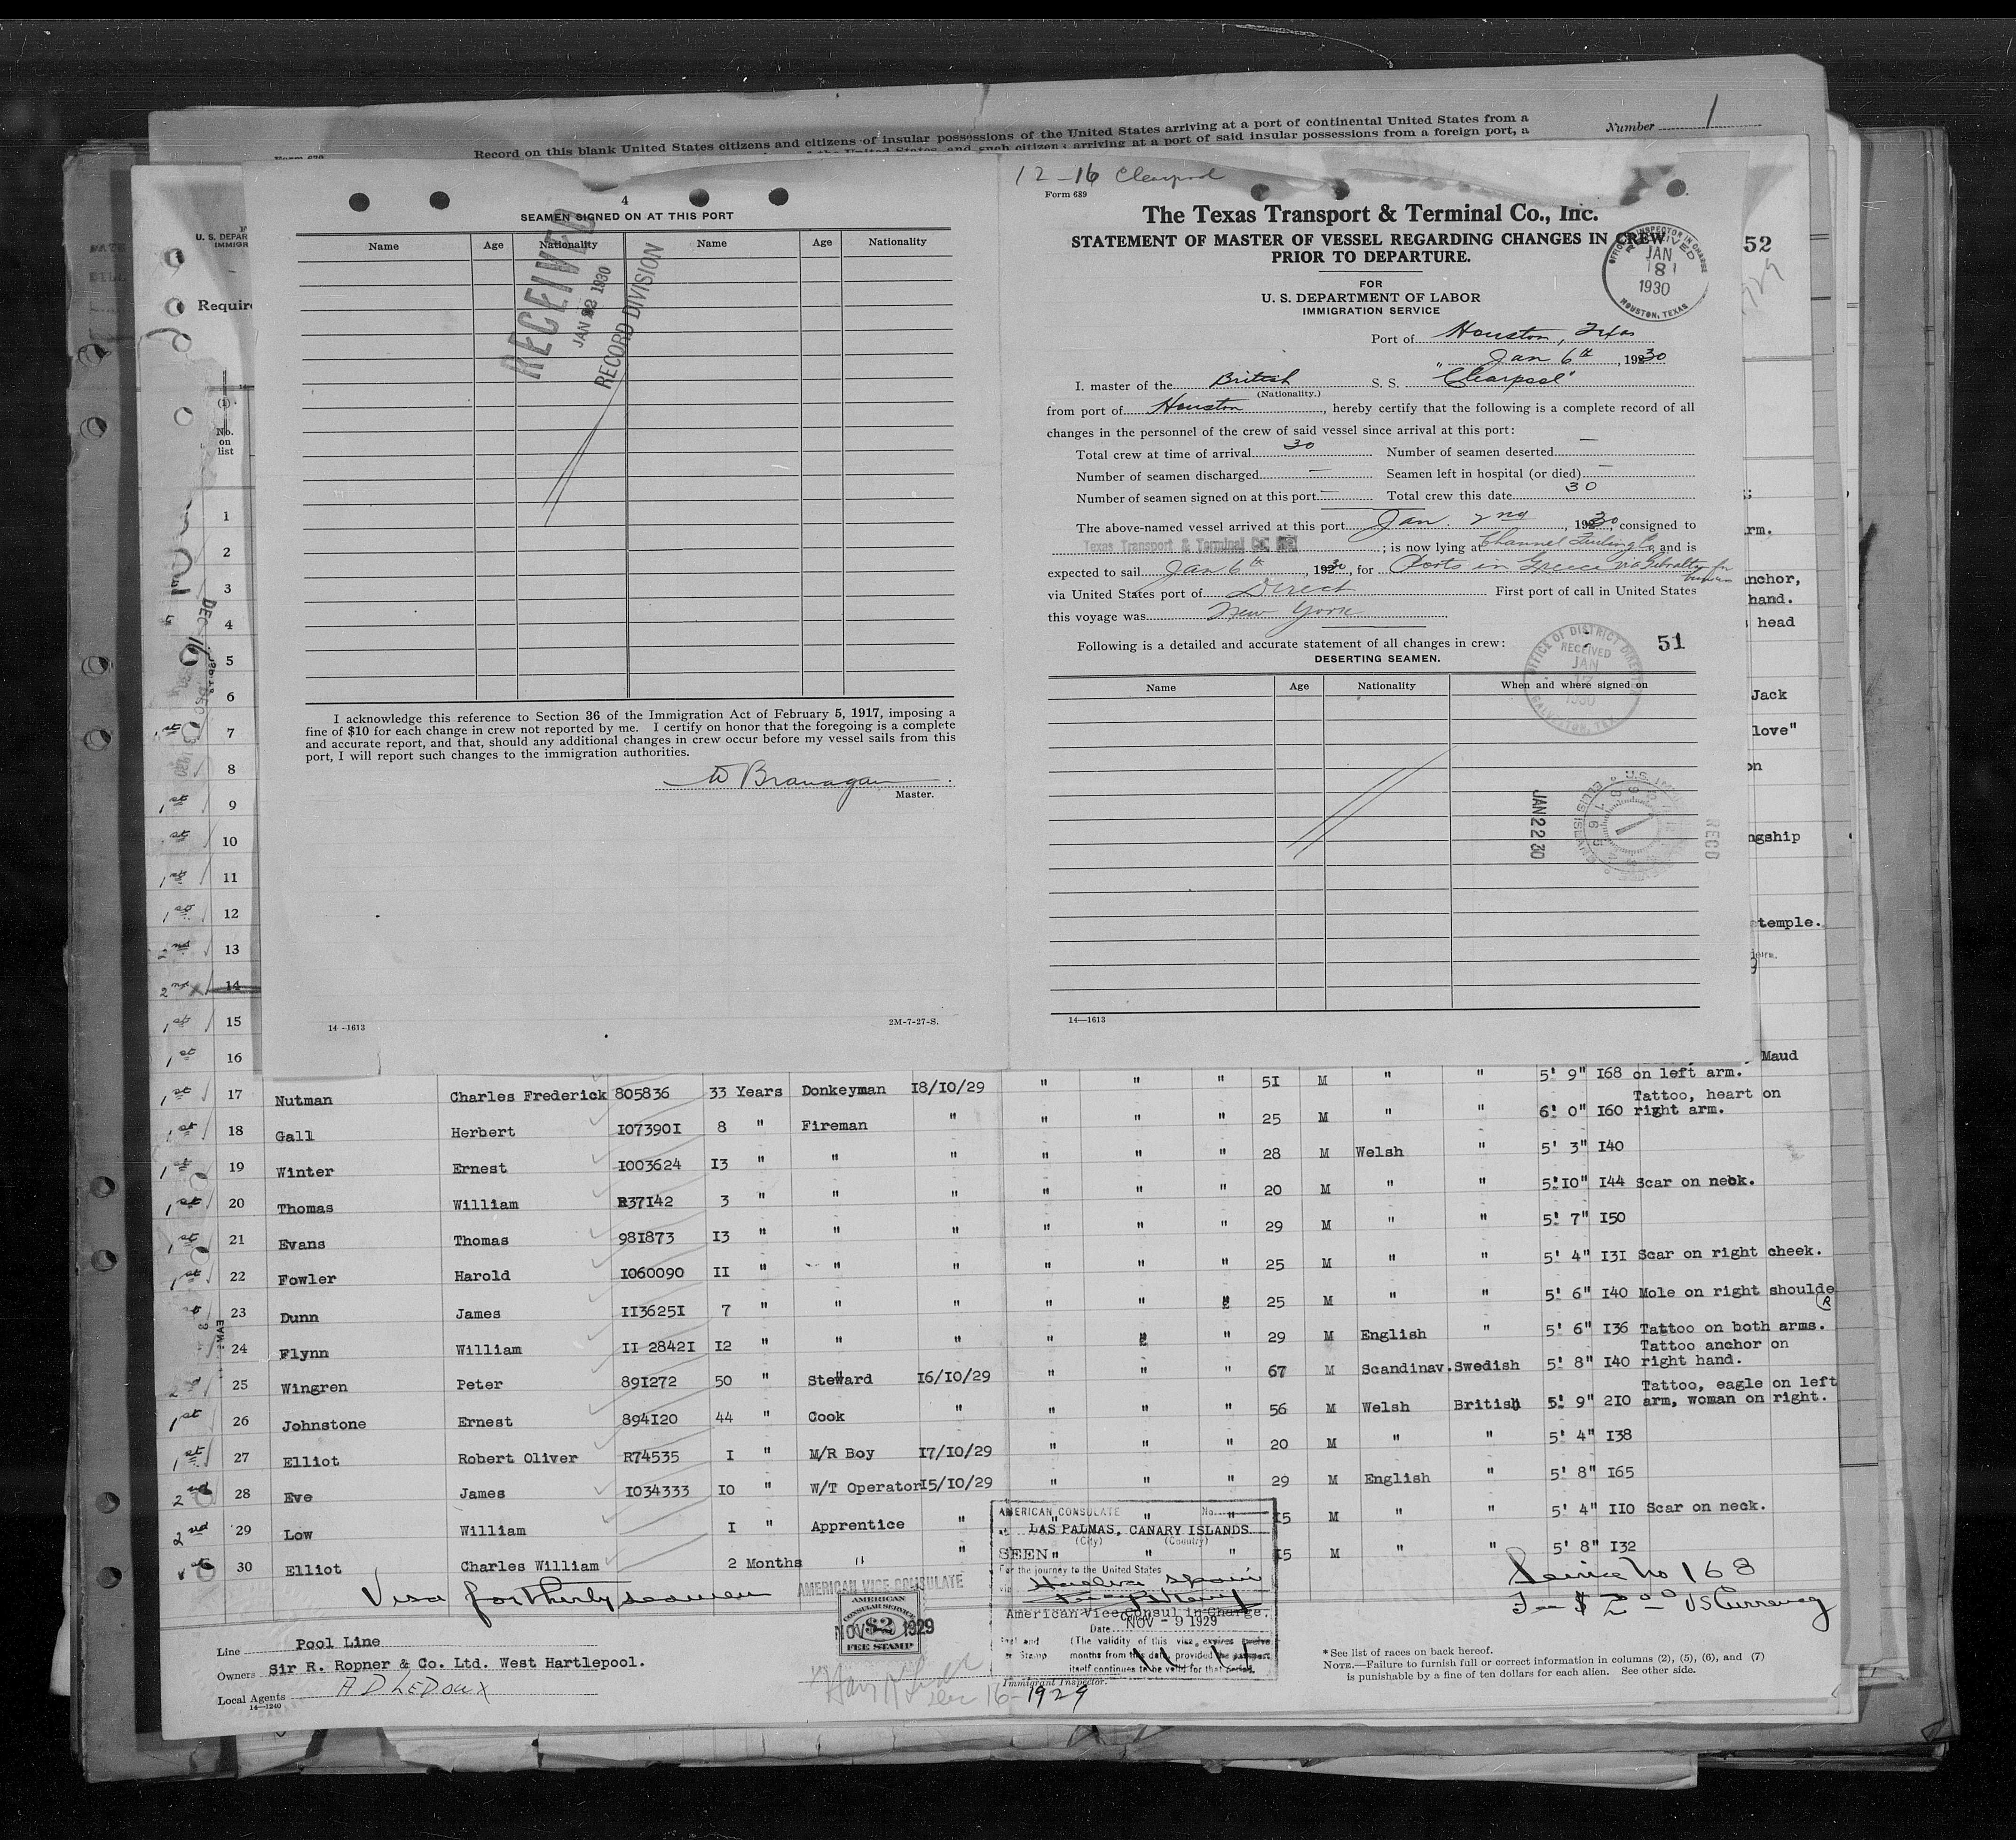 Record on this blank United States citizens and citizens of insular possessions of the United States arriving at a port of continental United States from a
Number 1
arriving at a port of said insular possessions from a foreign port, a
4
SEAMEN SIGNED ON AT THIS PORT
Name Age Nationality Name Age Nationality
RECEIVED
JAN 22 1930
RECORD DIVISION
I acknowledge this reference to Section 36 of the Immigration Act of February 5, 1917, imposing a
fine of $10 for each change in crew not reported by me. I certify on honor that the foregoing is a complete
and accurate report, and that, should any additional changes in crew occur before my vessel sails from this
port, I will report such changes to the immigration authorities.
W Branagan
Master.
14-1613 2M-7-27-S.
12-16 Clearpool
Form 689
The Texas Transport & Terminal Co., Inc.
STATEMENT OF MASTER OF VESSEL REGARDING CHANGES IN CREW
PRIOR TO DEPARTURE.
FOR
U. S. DEPARTMENT OF LABOR
IMMIGRATION SERVICE
OFFICE INSPECTOR IN CHARGE
RECEIVED
JAN
8
1930
HOUSTON, TEXAS
52
Port of Houston, Texas
" Jan 6th, 1930
I. master of the British S. S. "Clearpool"
(Nationality.)
from port of Houston, hereby certify that the following is a complete record of all
changes in the personnel of the crew of said vessel since arrival at this port:
Total crew at time of arrival 30 Number of seamen deserted —
Number of seamen discharged — Seamen left in hospital (or died) —
Number of seamen signed on at this port — Total crew this date 30
The above-named vessel arrived at this port Jan. 2nd, 1930, consigned to
Texas Transport & Terminal Co. Inc ; is now lying at Channel Fueling Co and is
expected to sail Jan 6th, 1930, for Ports in Greece via Gibraltar for
via United States port of Direct First port of call in United States
this voyage was New York
Following is a detailed and accurate statement of all changes in crew:
DESERTING SEAMEN.
51
OFFICE OF DISTRICT DIRECTOR
RECEIVED
JAN
1930
GALVESTON, TEX
Name Age Nationality When and where signed on
JAN 22 30
RECD
14—1613
U. S. DEPAR
IMMIGR
Requir
(1)
No.
on
list
1
2
3
4
5
6
7
8
9
10
11
12
13
14
15
16
rm.
nchor,
hand.
head
Jack
love"
on
ngship
temple.
Maud
1st 17 Nutman Charles Frederick 805836 33 Years Donkeyman 18/10/29 " " " 51 M " " 5' 9" 168 on left arm.
1st 18 Gall Herbert 1073901 8 " Fireman " " " " 25 M " " 6' 0" 160 Tattoo, heart on
right arm.
1st 19 Winter Ernest 1003624 13 " " " " " " 28 M Welsh " 5' 3" 140
1st 20 Thomas William R37142 3 " " " " " " 20 M " " 5'10" 144 Scar on neck.
1st 21 Evans Thomas 981873 13 " " " " " " 29 M " " 5' 7" 150
1st 22 Fowler Harold 1060090 11 " " " " " " 25 M " " 5' 4" 131 Scar on right cheek.
23 Dunn James 1136251 7 " " " " " " 25 M " " 5' 6" 140 Mole on right shoulde R
24 Flynn William 11 28421 12 " " " " " " 29 M English " 5' 6" 136 Tattoo on both arms.
25 Wingren Peter 891272 50 " Steward 16/10/29 " " " 67 M Scandinav. Swedish 5' 8" 140 Tattoo anchor on
right hand.
1st 26 Johnstone Ernest 894120 44 " Cook " " " " 56 M Welsh British 5' 9" 210 Tattoo, eagle on left
arm, woman on right.
1st 27 Elliot Robert Oliver R74535 1 " M/R Boy 17/10/29 " " " 20 M " " 5' 4" 138
2nd 28 Eve James 1034333 10 " W/T Operator 15/10/29 " " " 29 M English " 5' 8" 165
2nd 29 Low William 1 " Apprentice " " " " 15 M " " 5' 4" 110 Scar on neck.
30 Elliot Charles William 2 Months " " " " " 15 M " " 5' 8" 132
Visa for thirty seamen
AMERICAN VICE CONSULATE
AMERICAN
CONSULAR SERVICE
$2
NOV 1929
FEE STAMP
AMERICAN CONSULATE No.
at LAS PALMAS, CANARY ISLANDS
(City) (Country)
SEEN
For the journey to the United States
via Huelva Spain
American Vice Consul in Charge.
Date NOV - 9 1929
(The validity of this visa expires twelve
months from this date, provided the passport
itself continues to be valid for that period.
Immigrant Inspector.
Dec 16-1929
Service No 168
Fee $ 2.00 US Currency
Line Pool Line
Owners Sir R. Ropner & Co. Ltd. West Hartlepool.
Local Agents A D LEDOUX
14—1240
*See list of races on back hereof.
NOTE.—Failure to furnish full or correct information in columns (2), (5), (6), and (7)
is punishable by a fine of ten dollars for each alien. See other side.